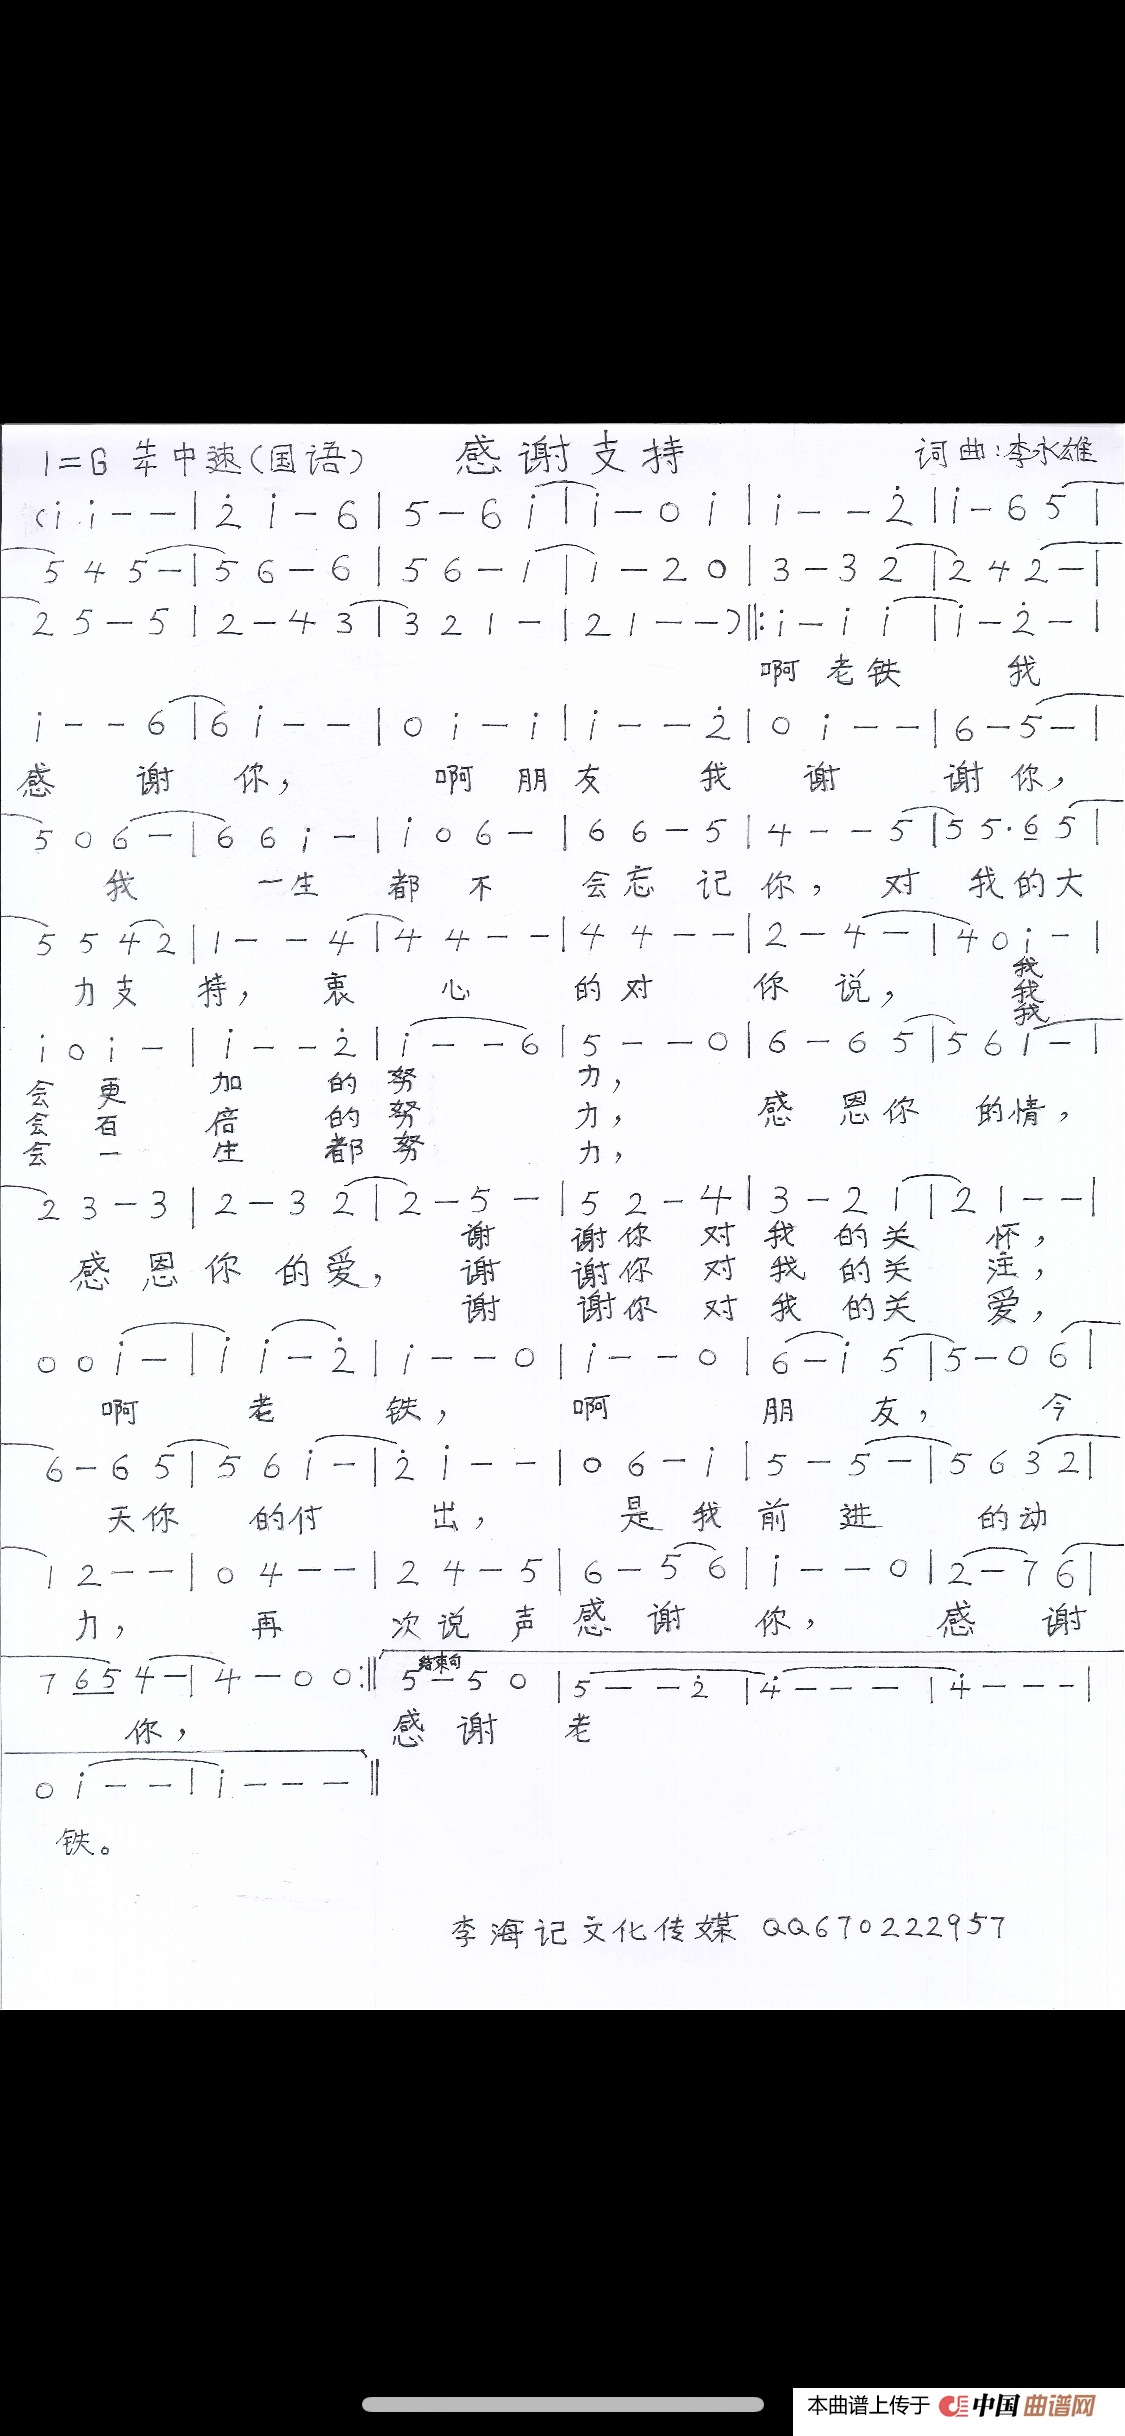 1=G 4/4 中速(国语) 感谢支持 词曲:李永雄
(i i - - | 2̇ i - 6 | 5 - 6 i | i - 0 i | i - - 2̇ | i - 6 5 |
5 4 5 - | 5 6 - 6 | 5 6 - 1 | 1 - 2 0 | 3 - 3 2 | 2 4 2 - |
2 5 - 5 | 2 - 4 3 | 3 2 1 - | 2 1 - - ) ‖: i - i i | i - 2̇ - |
啊 老 铁 我
i - - 6 | 6 i - - | 0 i - i | i - - 2̇ | 0 i - - | 6 - 5 - |
感 谢 你, 啊 朋 友 我 谢 谢 你,
5 0 6 - | 6 6 i - | i 0 6 - | 6 6 - 5 | 4 - - 5 | 5 5· 6 5 |
我 一 生 都 不 会 忘 记 你, 对 我 的 大
5 5 4 2 | 1 - - 4 | 4 4 - - | 4 4 - - | 2 - 4 - | 4 0 i - |
力 支 持, 衷 心 的 对 你 说, 我
我
我
i 0 i - | i - - 2̇ | i - - 6 | 5 - - 0 | 6 - 6 5 | 5 6 1 - |
会 更 加 的 努 力,
会 百 倍 的 努 力, 感 恩 你 的 情,
会 一 生 都 努 力,
2 3 - 3 | 2 - 3 2 | 2 - 5 - | 5 2 - 4 | 3 - 2 1 | 2 1 - - |
谢 谢 你 对 我 的 关 怀,
感 恩 你 的 爱, 谢 谢 你 对 我 的 关 注,
谢 谢 你 对 我 的 关 爱,
0 0 i - | i i - 2̇ | i - - 0 | i - - 0 | 6 - i 5 | 5 - 0 6 |
啊 老 铁, 啊 朋 友, 今
6 - 6 5 | 5 6 i - | 2̇ i - - | 0 6 - i | 5 - 5 - | 5 6 3 2 |
天 你 的 付 出, 是 我 前 进 的 动
1 2 - - | 0 4 - - | 2 4 - 5 | 6 - 5 6 | i - - 0 | 2 - 7 6 |
力, 再 次 说 声 感 谢 你, 感 谢
结束句
7 6 5 4 - | 4 - 0 0 :‖ 5 - 5 0 | 5 - - 2̇ | 4̇ - - - | 4̇ - - - |
你, 感 谢 老
0 i - - | i - - - ‖
铁。
李海记文化传媒 QQ670222957
本曲谱上传于 中国曲谱网